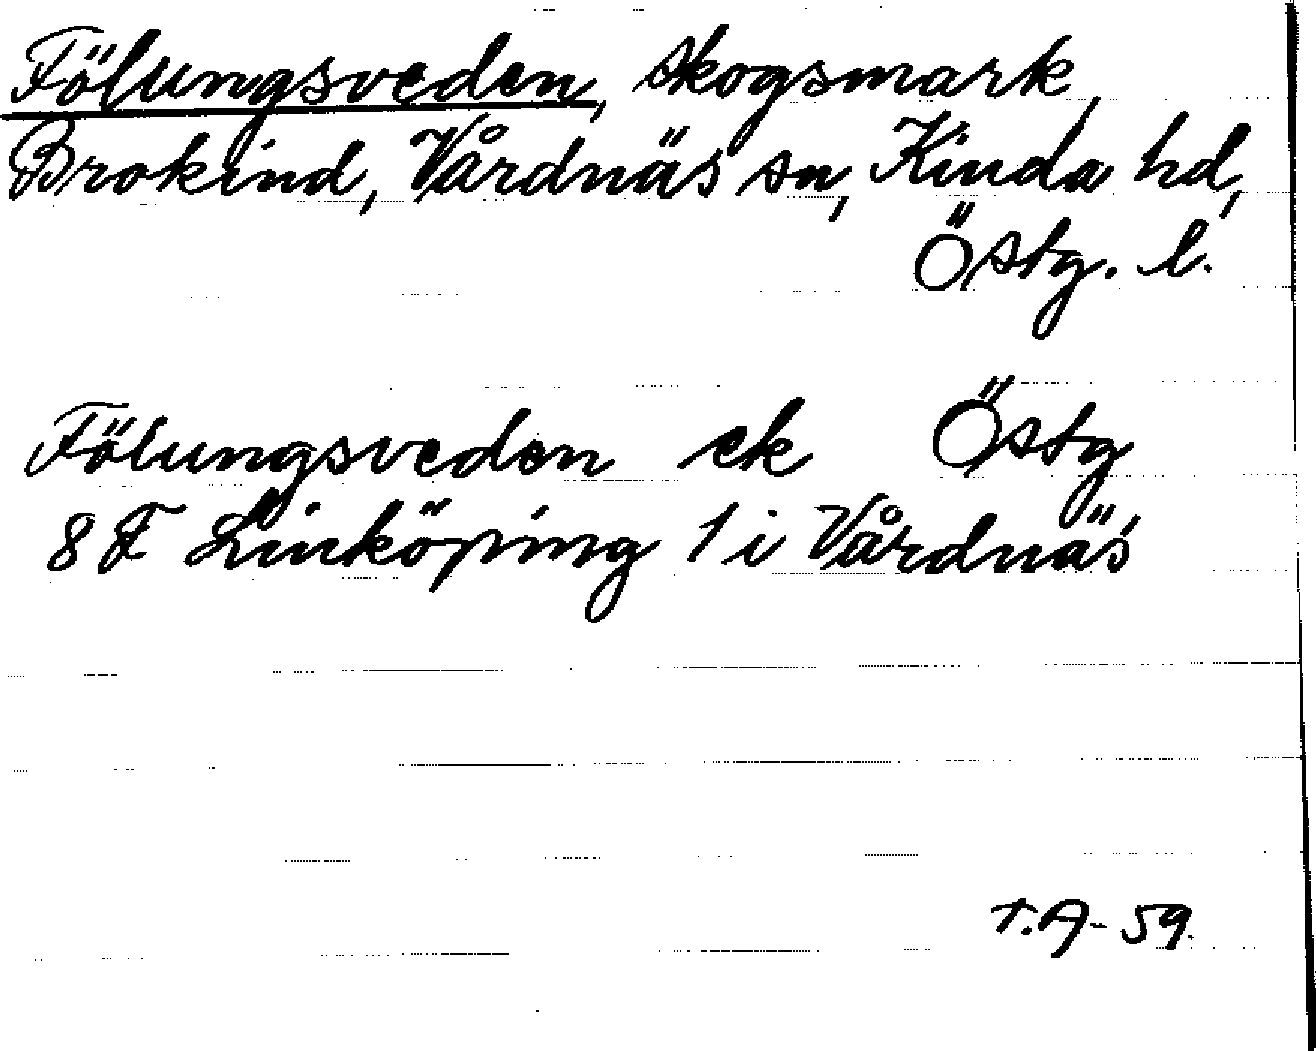 Fölungsveden, skogsmark,
Brokind, Vårdnäs sn, Kinda hd,
Östg. l.
Fölungsveden ek Östg
8 F Linköping 1 i Vårdnäs
T.A-59